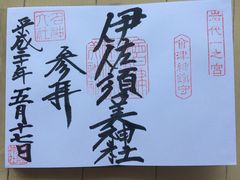 岩代一之宮
會津総鎮守
伊佐須美神社
参拝
名神大社
平成二十年五月十七日